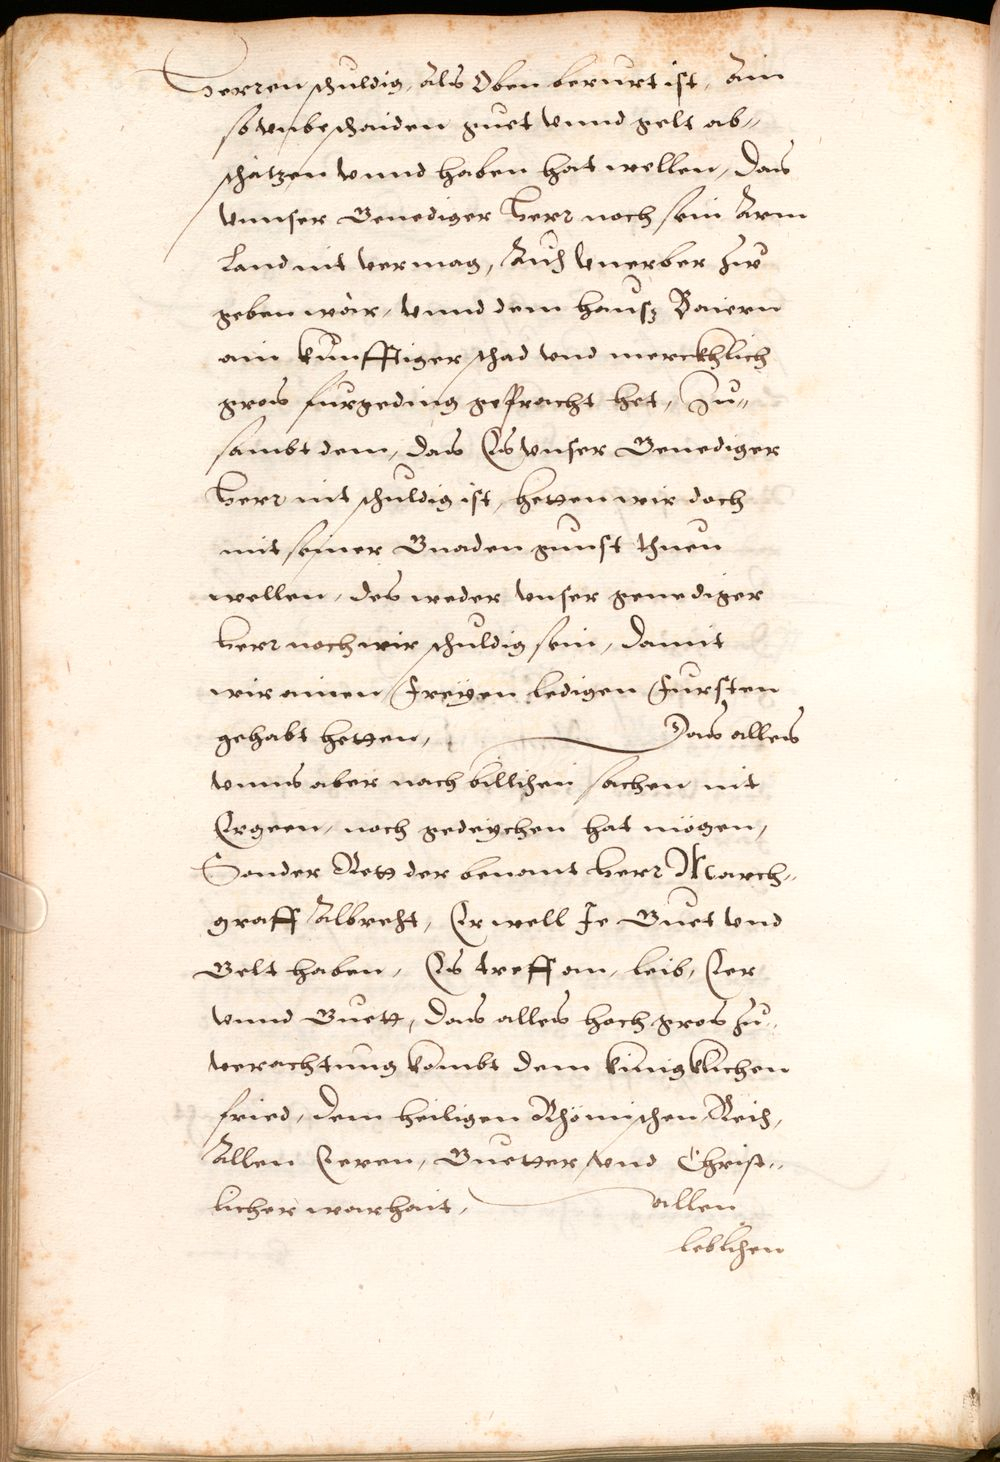 Herren schuldig, Als Oben berurt ist, Ain
so vnbeschaiden guet vnnd gelt ab„
schätzen vnnd haben hat wellen, das
vnnser Genediger Herr noch sein Arm
Land nit vermag, Auch vnerber zw
geben wär, vnnd dem hausz Baiern
ain künfftiger schad vnd merckhlich
gros furgeding gebracht het, Zu„
sambt dem, das Es vnser Genediger
Herr nit schuldig ist, hetten wir doch
mit seiner Gnaden gunst thuen
wellen, des weder vnser genediger
Herr noch wir schuldig sein, damit
wir ainen Freyen ledigen Fursten
gehabt hetten, Das alles
vnns aber nach billichen sachen nit
Ergeen, noch gedeychen hat mögen,
Sonder Rett der benant Herr March„
graff Albrecht, Er well Je Guet vnd
Gelt haben, Es treff an, leib, Eer
vnnd Guett, das alles hoch gros zu„
verachtung kombt dem künigklichen
fried, dem heiligen Rhömischen Reich,
Allen Eeren, Guetter vnd Christ„
licher warhait, allen
leblichen